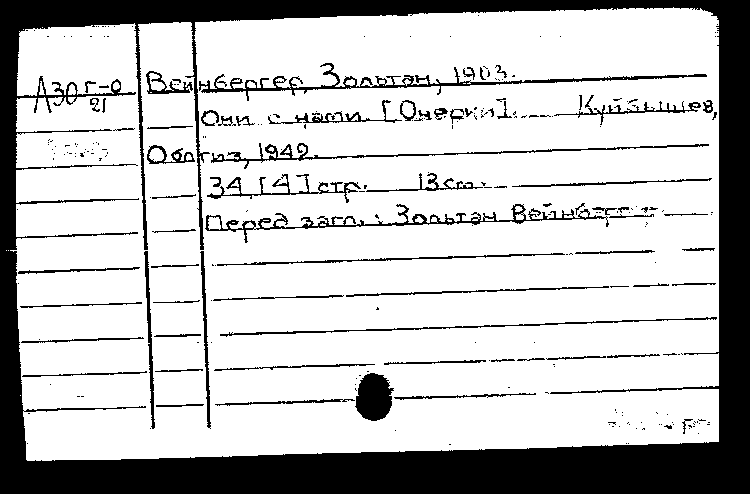 А30 г-о/21
Вейнбергер, Зольтан, 1903.
Они с нами. [Очерки]. Куйбышев,
Облгиз, 1949.
34, [4] стр. 13 см.
Перед загл.: Зольтан Вейнбергер